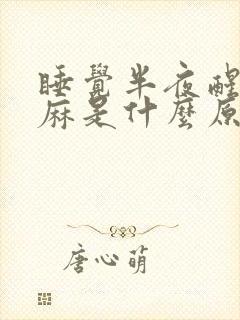 睡覺半夜醒
麻是什麼原
唐心萌